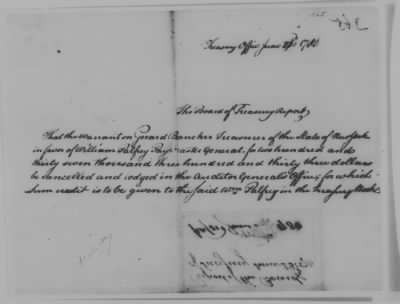 365
Treasury Office June 1780
The Board of Treasury Report,
That the Warrant on Gerard Bancker Treasurer of the State of New York
in favor of William Palfrey Pay master General, for two hundred and
thirty seven thousand three hundred and thirty three dollars
be cancelled and lodged in the Auditor General's Office; for which
sum credit is to be given to the said Wm. Palfrey in the Treasury Books.
Report of the Board
of Treasury June